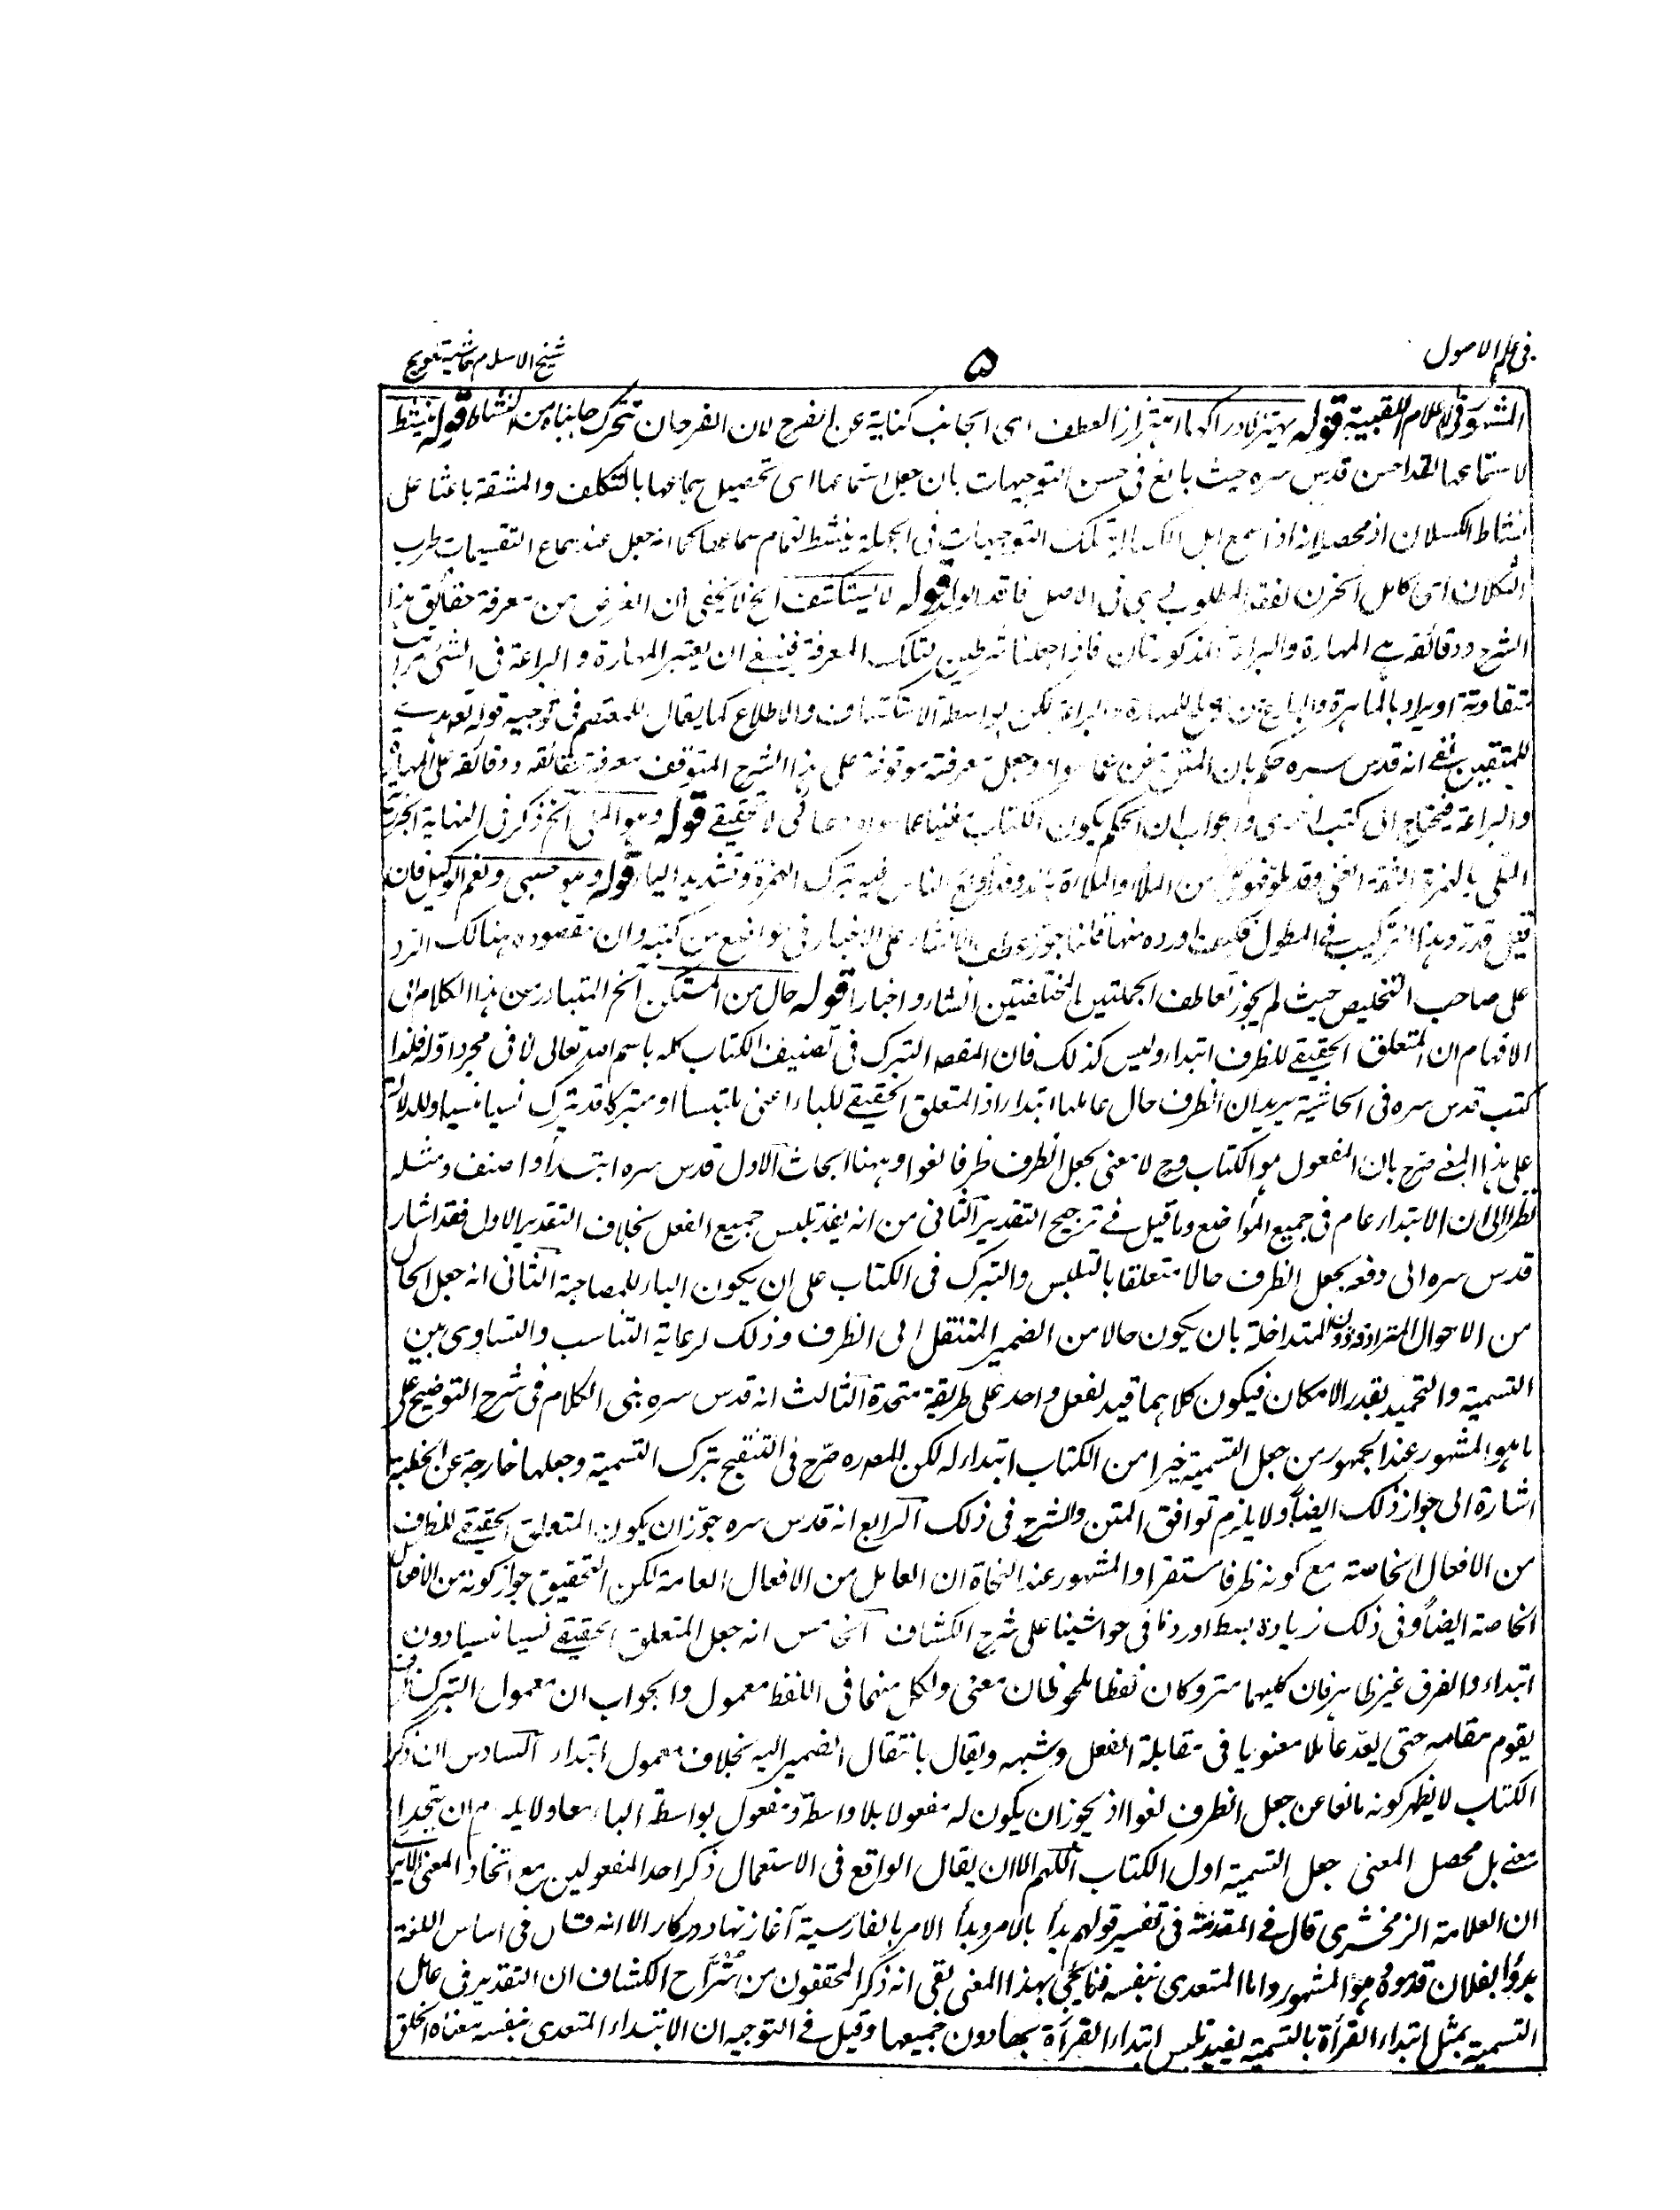 في علم الاصول
۵
شيخ الاسلام حاشية تلويح
المشهور في الاعلام اللقبية قوله يهتز لادراكها اهتزاز العطف اى الجانب كناية عن الفرح لان الفرحان تتحرك جانباه من النشاط قوله ينشط
لاستماعها لقد احسن قدس سره حيث بالغ في حسن التوجيهات بان جعل استماعها اى تحصيل سماعها بالتكلف والمشقة باعثا على
نشاط الكسلان اذ محصله انه اذا سمع اهل الكسالة تلك التوجيهات في الجملة ينشط لتمام سماعها كما انه جعل عند سماع التقسيمات طرب
الثكلان اى كامل الحزن لفقد المطلوب هى في الاصل فاقد الولد قوله لا يستكشف الخ لا يخفى ان الغرض من معرفة حقائق هذا
الشرح ودقائقه هي المهارة والبراعة المذكورتان فاذا جعلتا شرطين لتلك المعرفة فينبغي ان يعتبر المهارة والبراعة في الشئ مراتب
متفاوتة او يراد بالماهر والبارع من للمهارة والبراعة لكن بواسطة الاستكشاف والاطلاع كما يقال للمعتصم في توجيه قوله تعالى هدى
للمتقين بقى انه قدس سره حكم بان المتن مغن عما سواه وجعل معرفته موقوفة على هذا الشرح المتوقف معرفة حقائقه ودقائقه على المهارة
والبراعة فيحتاج الى كتب اخرى والجواب ان الحكم بكون الكتاب مغنيا عما سواه ادعائى لا تحقيقي قوله وهو الملى الخ ذكر في النهاية الجزرية
الملى بالهمزة الثقة الغنى وقد ملؤ فهو ملئ من الملأ والملاءة بالمد وقد اولع الناس فيه بترك الهمزة وتشديد الياء قوله وهو حسبى ونعم الوكيل فان
قيل قد رد هذا التركيب في المطول فكيف اورده منها قلنا جوز عطف الانشاء على الاخبار في مواضع من كتبه وان مقصوده هنالك الرد
على صاحب التلخيص حيث لم يجوز تعاطف الجملتين المختلفتين انشاء واخبارا قوله حال من المستكن الخ المتبادر من هذا الكلام الى
الافهام ان المتعلق الحقيقي للظرف ابتداء وليس كذلك فان المقصد التبرك في تصنيف الكتاب كله باسم الله تعالى لا في مجرد اوله فلذا
كتب قدس سره في الحاشية يريد ان الظرف حال عاملها ابتداء اذ المتعلق الحقيقي للباء اعنى ملتبسا او متبركا قد ترك نسيا منسيا وللدلالة
على هذا المعنى صرح بان المفعول هو الكتاب وح لا معنى لجعل الظرف ظرفا لغوا وههنا ابحاث الاول قدس سره ابتداء او اصنف ومثله
نظرا الى ان الابتداء عام في جميع المواضع وما قيل في ترجيح التقدير الثانى من انه يفيد تلبس جميع الفعل بخلاف التقدير الاول فقد اشار
قدس سره الى دفعه بجعل الظرف حالا متعلقا بالتلبس والتبرك في الكتاب على ان يكون الباء للمصاحبة الثانى انه جعل الحال
من الاحوال المترادفة دون المتداخلة بان يكون حالا من الضمير المنتقل الى الظرف وذلك لرعاية التناسب والتساوى بين
التسمية والتحميد بقدر الامكان فيكون كلاهما قيد لفعل واحد على طريقة متحدة الثالث انه قدس سره بنى الكلام في شرح التوضيح على
ما هو المشهور عند الجمهور من جعل التسمية خيرا من الكتاب ابتداء له لكن المصدره صرح في التنقيح بترك التسمية وجعلها خارجة عن الخطبة
اشارة الى جواز ذلك ايضا ولا يلزم توافق المتن والشرح في ذلك الرابع انه قدس سره جوز ان يكون المتعلق الحقيقي للظرف
من الافعال الخاصة مع كونه ظرفا مستقرا والمشهور عند النحاة ان العامل من الافعال العامة لكن التحقيق جواز كونه من الافعال
الخاصة ايضا وفي ذلك زيادة بسط اوردنا في حواشينا على شرح الكشاف الخامس انه جعل المتعلق الحقيقي نسيا منسيا دون
ابتداء والفرق غير ظاهر فان كليهما متروكان لفظا ملحوظان معنى ولكل منهما في اللفظ معمول والجواب ان معمول التبرك
يقوم مقامه حتى يعد عاملا معنويا في مقابلة الفعل وشبهه ويقال بانتقال الضمير اليه بخلاف معمول ابتداء السادس ان ذكر
الكتاب لا يظهر كونه مانعا عن جعل الظرف لغوا اذ يجوز ان يكون له مفعول بلا واسطة ومفعول بواسطة الباء معا ولا يلزم ان يتحدا
معنى بل محصل المعنى جعل التسمية اول الكتاب اللهم الا ان يقال الواقع في الاستعمال ذكر احد المفعولين مع اتحاد المعنى
ان العلامة الزمخشرى قال في المقدمة في تفسير قولهم بدأ بالامر وبدأ الامر بالفارسية آغاز نهاد در كار الا انه قال في اساس اللغة
بدؤا بفلان قدموه هو المشهور واما المتعدى بنفسه فما يجئ بهذا المعنى بقى انه ذكر المحققون من شراح الكشاف ان التقدير في عامل
التسمية بمثل ابتداء القرأة بالتسمية يفيد تلبس ابتداء القرأة بها دون جميعها وقيل في التوجيه ان الابتداء المتعدى بنفسه معناه الخلق